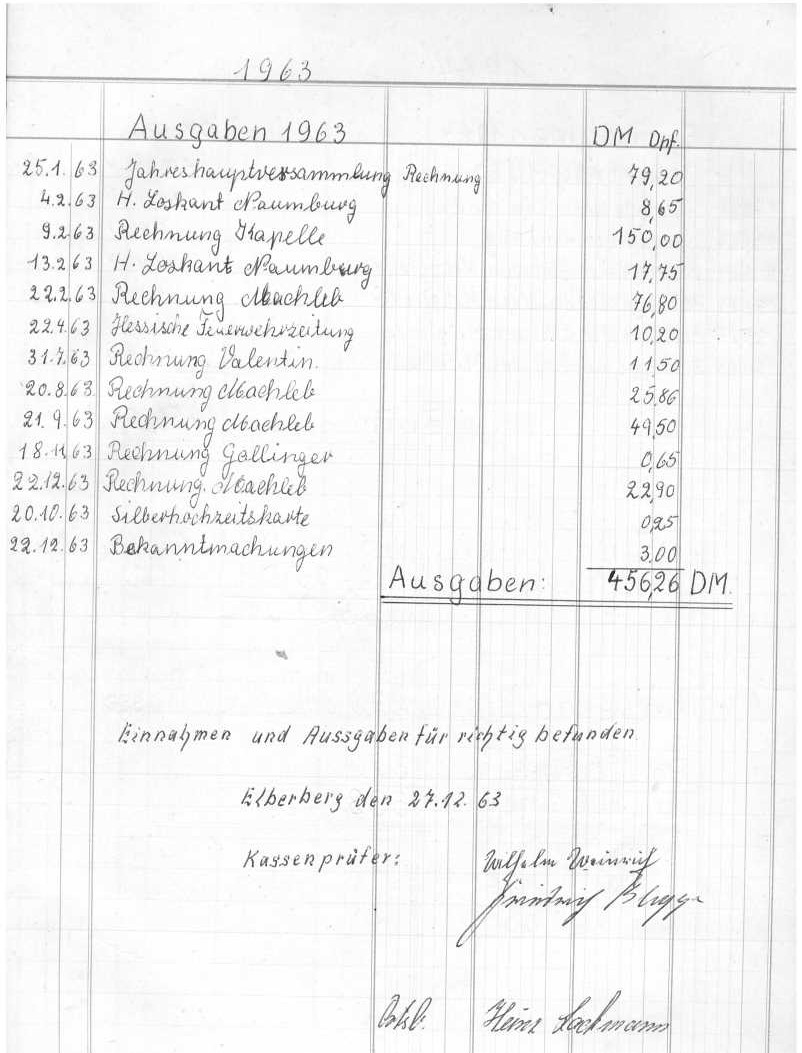 1963
Ausgaben 1963 DM Dpf.
25.1.63 Jahreshauptversammlung Rechnung 79,20
4.2.63 H. Loskant Naumburg 8,65
9.2.63 Rechnung Kapelle 150,00
13.2.63 H. Loskant Naumburg 17,75
22.2.63 Rechnung Machleb 76,80
22.4.63 Hessische Feuerwehrzeitung 10,20
31.7.63 Rechnung Valentin. 11,50
20.8.63 Rechnung Machleb 25,86
21.9.63 Rechnung Machleb 49,50
18.11.63 Rechnung Gallinger 0,65
22.12.63 Rechnung. Machleb 22,90
20.10.63 Silberhochzeitskarte 0,25
22.12.63 Bekanntmachungen 3,00
Ausgaben: 456,26 DM.
Einnahmen und Aussgaben für richtig befunden
Elberberg den 27.12.63
Kassenprüfer: Wilhelm Weinrich
Friedrich
Heinz Lachmann